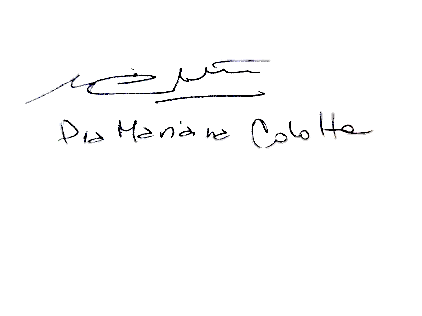 Dra Mariana Colotta